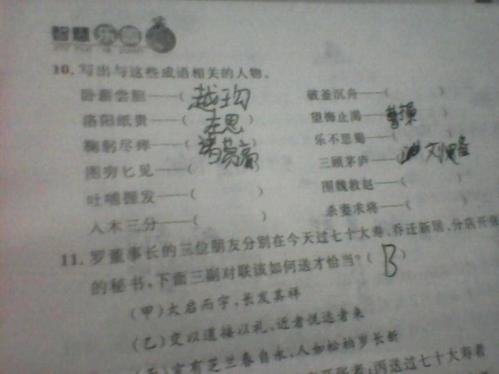 智慧乐园
10. 写出与这些成语相关的人物。
卧薪尝胆——( ) 破釜沉舟——( )
洛阳纸贵——(左思) 望梅止渴——(曹操
鞠躬尽瘁——( ) 乐不思蜀——( )
图穷匕见——( ) 三顾茅庐——刘备
吐哺握发——( ) 围魏救赵——( )
入木三分——( ) 杀妻求将——( )
11. 罗董事长的三位朋友分别在今天过七十大寿、乔迁新居、分店开
的秘书,下面三副对联该如何送才恰当?( B )
(甲)大启而宇,长发其祥
(乙)交以道接以礼,近者悦远者来
室有芝兰春自永,人如松柏岁长新
开张者;丙送过七十大寿者